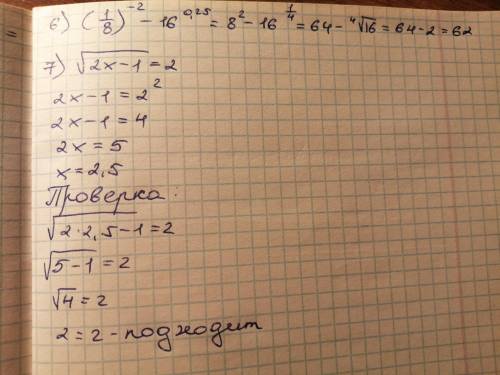 6) (1/8)^-2 - 16^0,25 = 8^2 - 16^1/4 = 64 - ⁴√16 = 64 - 2 = 62
=
7) √(2x-1) = 2
2x - 1 = 2^2
2x - 1 = 4
2x = 5
x = 2,5
Проверка:
√(2·2,5-1) = 2
√(5-1) = 2
√4 = 2
2 = 2 - подходит